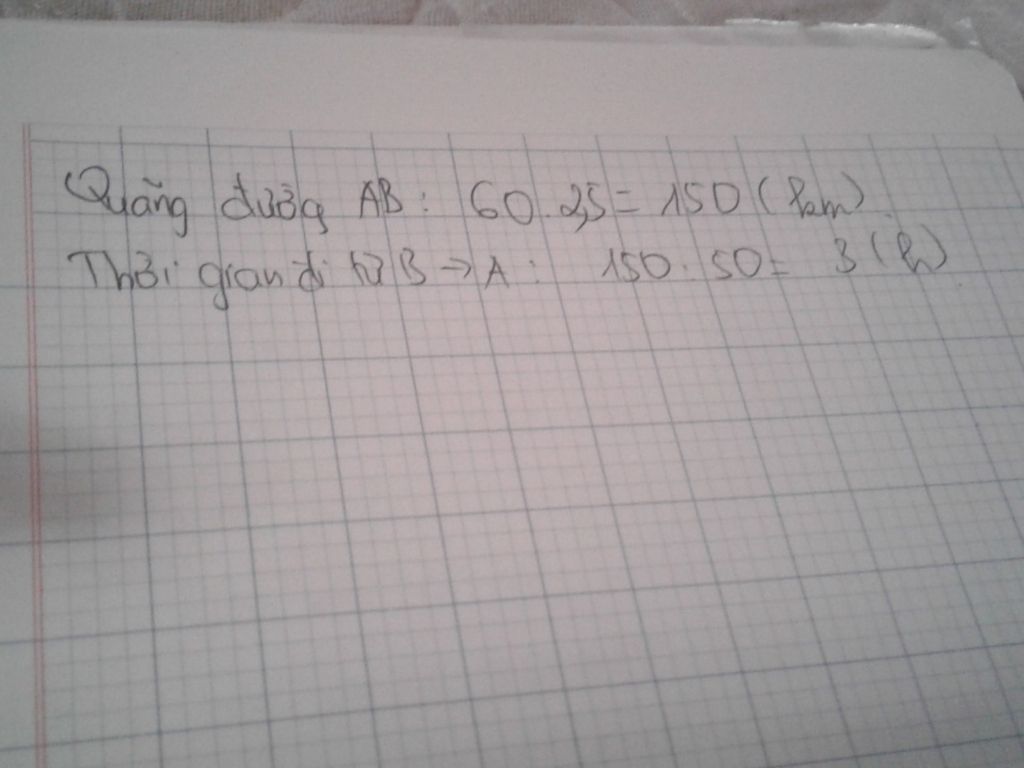 Quãng đường AB: 60.2,5 = 150 (km).
Thời gian đi từ B → A: 150:50 = 3 (h)